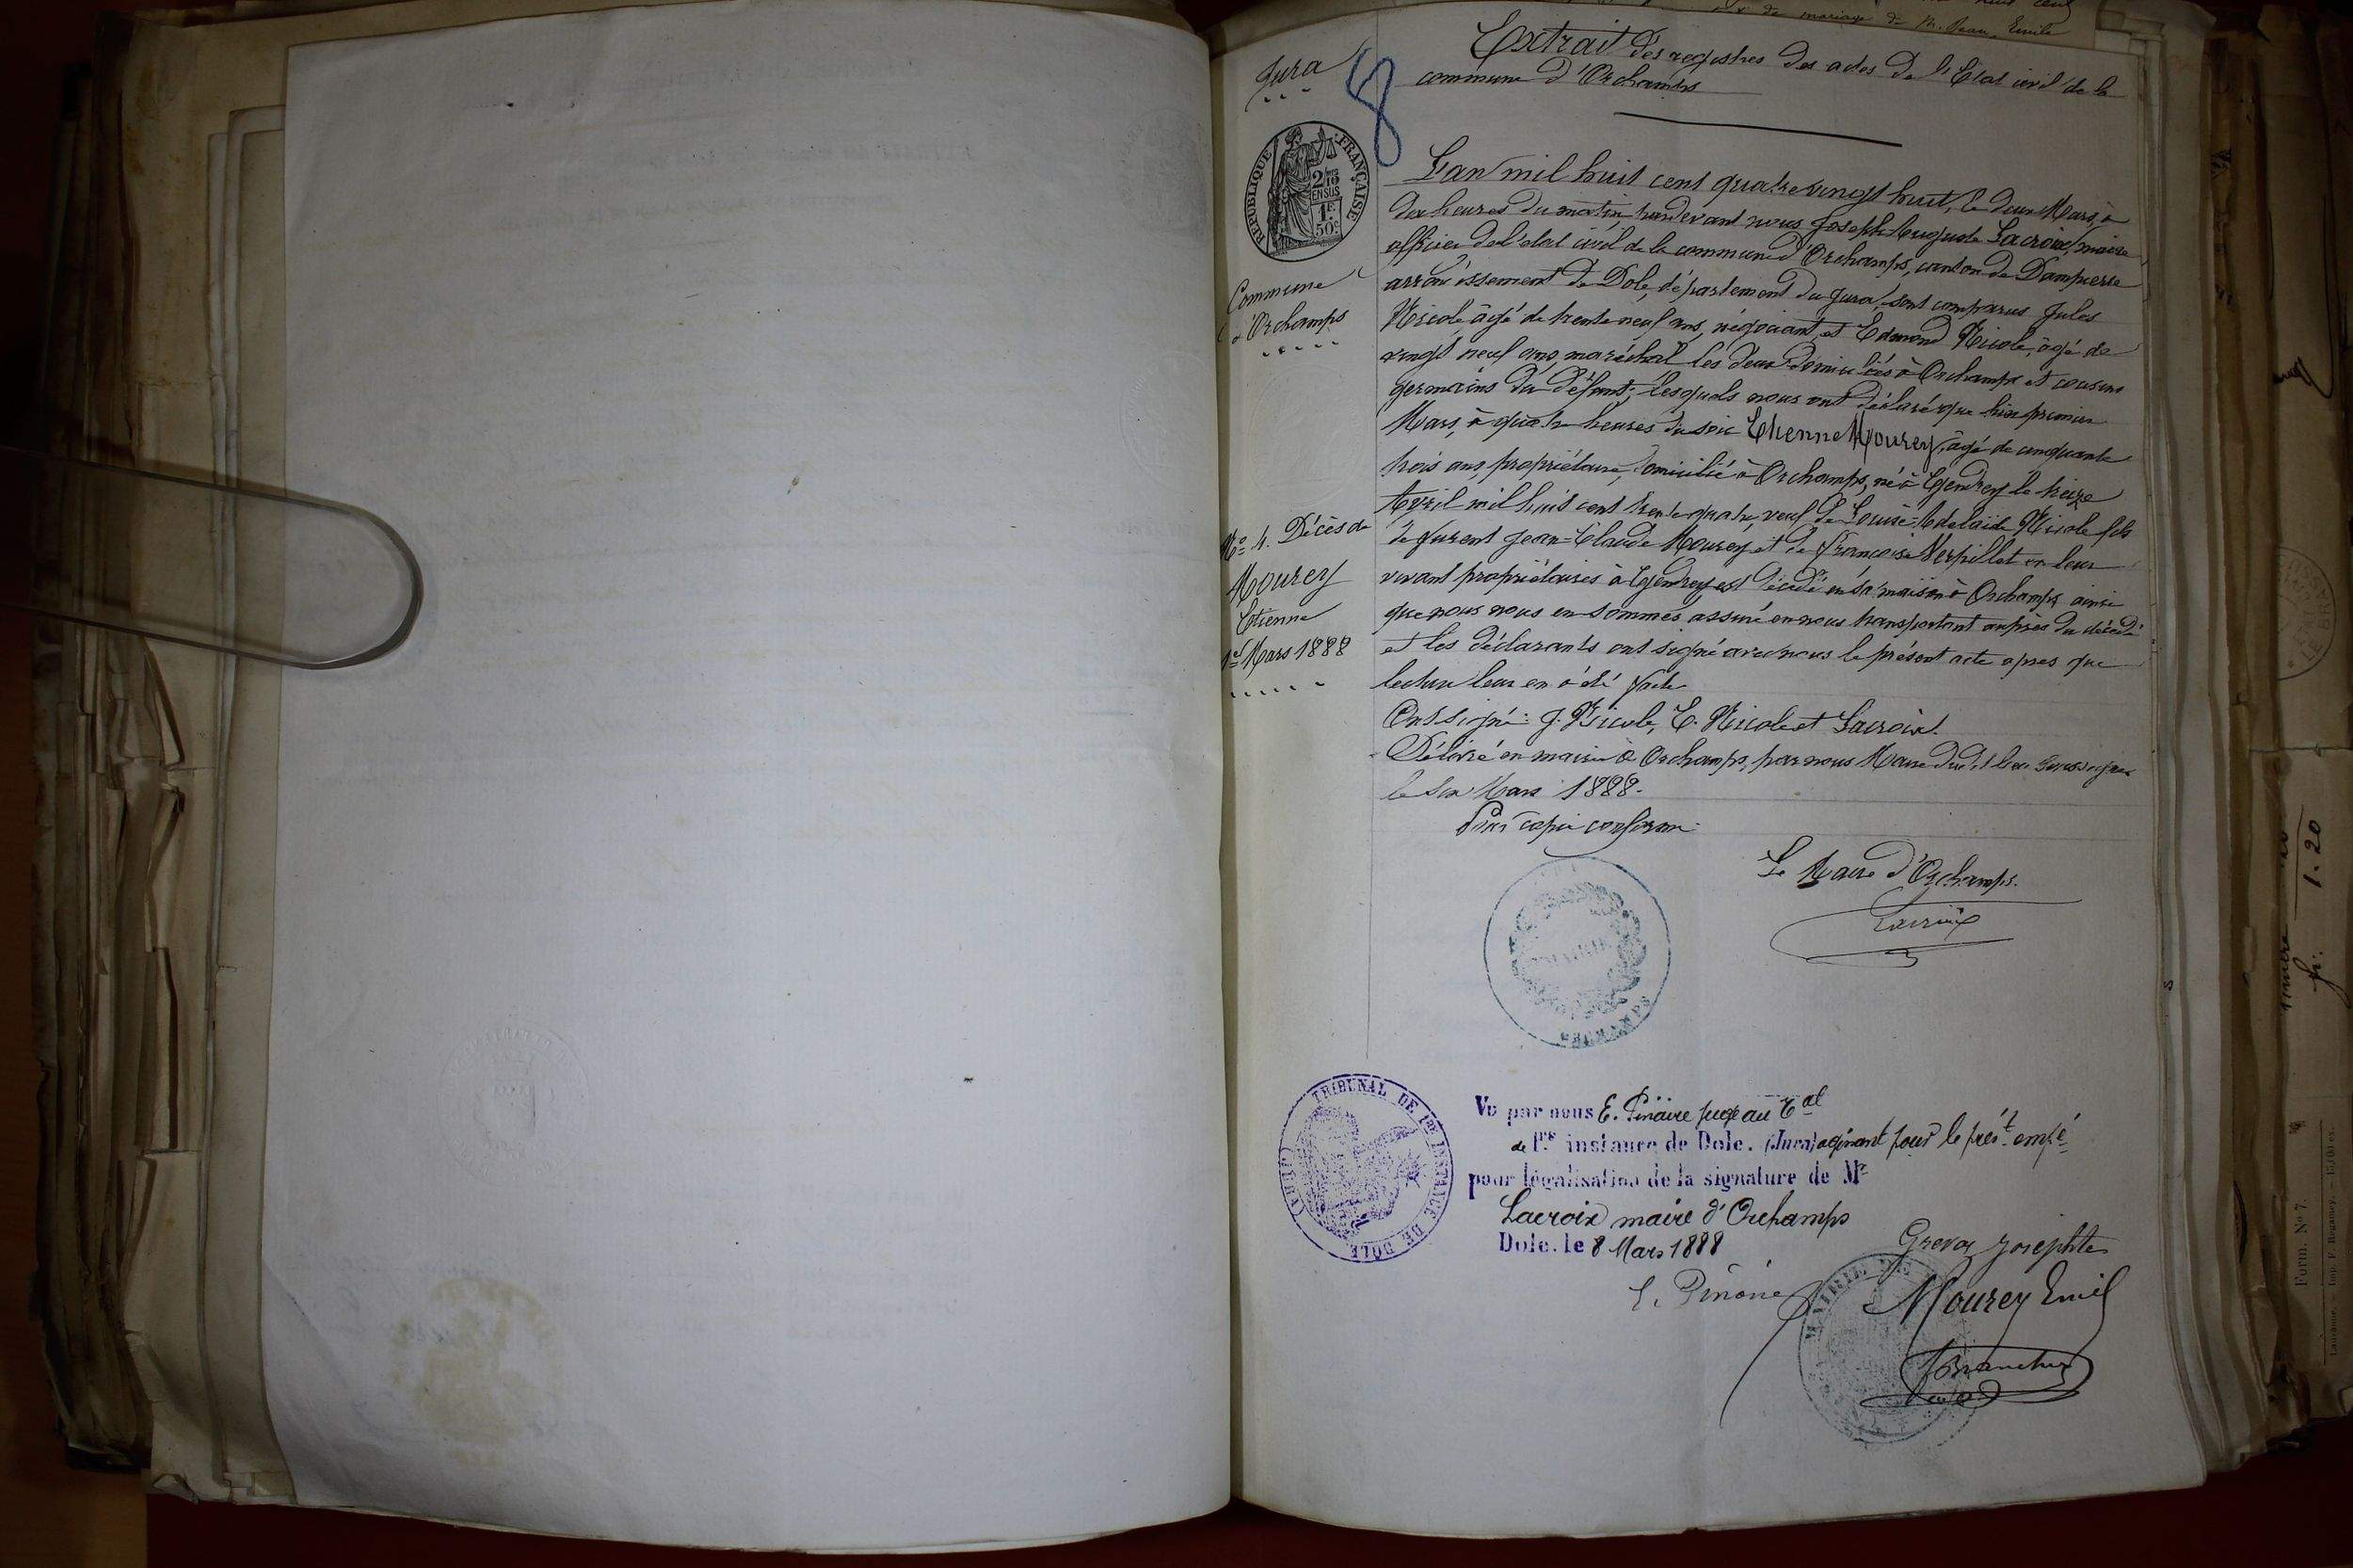 de mariage de M. Emile
Extrait des registres des actes de l'Etat civil de la
commune d'Orchamps
Jura
8
REPUBLIQUE FRANÇAISE
2/10
EN SUS
1F.
50c
Commune
d'Orchamps
L'an mil huit cent quatre vingt huit, le deux Mars, à
dix heures du matin, pardevant nous Joseph Auguste Lacroix, maire
officier de l'état civil de la commune d'Orchamps, canton de Dampierre
arrondissement de Dole, département du Jura, sont comparus Jules
Nicole âgé de trente neuf ans, négociant, et Edmond Nicole, âgé de
vingt neuf ans, maréchal les deux domiciliés à Orchamps et cousins
germains du défunt; lesquels nous ont déclaré que hier premier
Mars, à quatre heures du soir Etienne Mourey, âgé de cinquante
trois ans, propriétaire, domicilié à Orchamps, né à Gendrey le treize
Avril mil huit cent trente quatre, veuf de Louise-Adelaïde Nicole fils
de furent Jean-Claude Mourey et de Françoise Verpillet en leur
vivant propriétaires à Gendrey est décédé en sa maison à Orchamps ainsi
que nous nous en sommes assuré en nous transportant auprès du décédé
et les déclarants ont signé avec nous le présent acte après que
lecture leur en a été faite
No. 4. Décès de
Mourey
Etienne
1er Mars 1888
Ont signé: J. Nicole, E. Nicole et Lacroix.
Délivré en mairie à Orchamps, par nous Maire dudit lieu soussigné
le six Mars 1888.
Pour copie conforme:
Le Maire d'Orchamps.
Lacroix
MAIRIE
ORCHAMPS
TRIBUNAL DE 1RE INSTANCE DE DOLE (JURA)
Vu par nous E. Pinaire juge au Tal
de 1re instance de Dole. (Jura) agissant pour le prést. empé
pour légalisation de la signature de Mr
Lacroix maire d'Orchamps
Dole. le 8 Mars 1888
E. Pinaire
Josephte
Mourey Emil
fr. 1.20
Form. No 7.